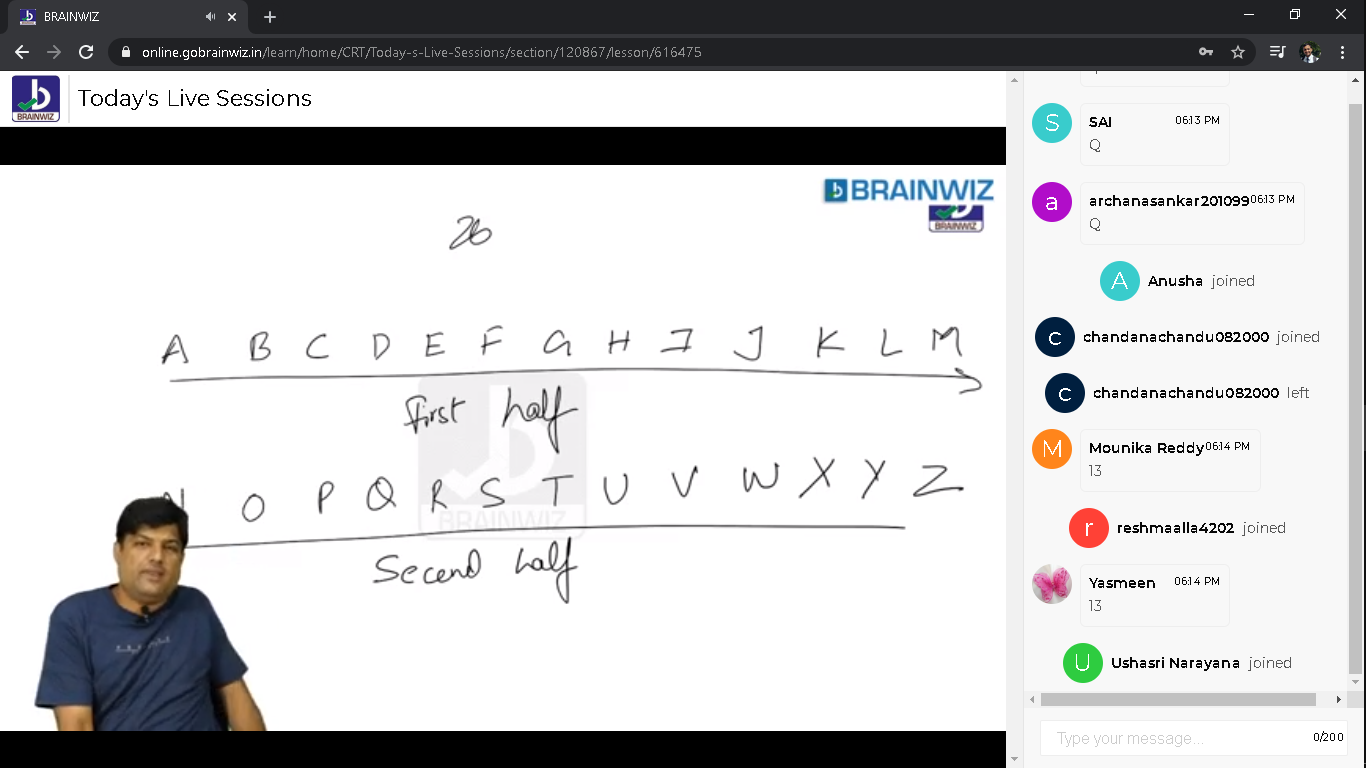 BRAINWIZ
online.gobrainwiz.in/learn/home/CRT/Today-s-Live-Sessions/section/120867/lesson/616475
BRAINWIZ
Today's Live Sessions
BRAINWIZ
BRAINWIZ
26
A B C D E F G H I J K L M
First half
N O P Q R S T U V W X Y Z
BRAINWIZ
Second half
S
SAI 06:13 PM
Q
a
archanasankar201099 06:13 PM
Q
A
Anusha joined
c
chandanachandu082000 joined
c
chandanachandu082000 left
M
Mounika Reddy 06:14 PM
13
r
reshmaalla4202 joined
Yasmeen 06:14 PM
13
U
Ushasri Narayana joined
Type your message... 0/200